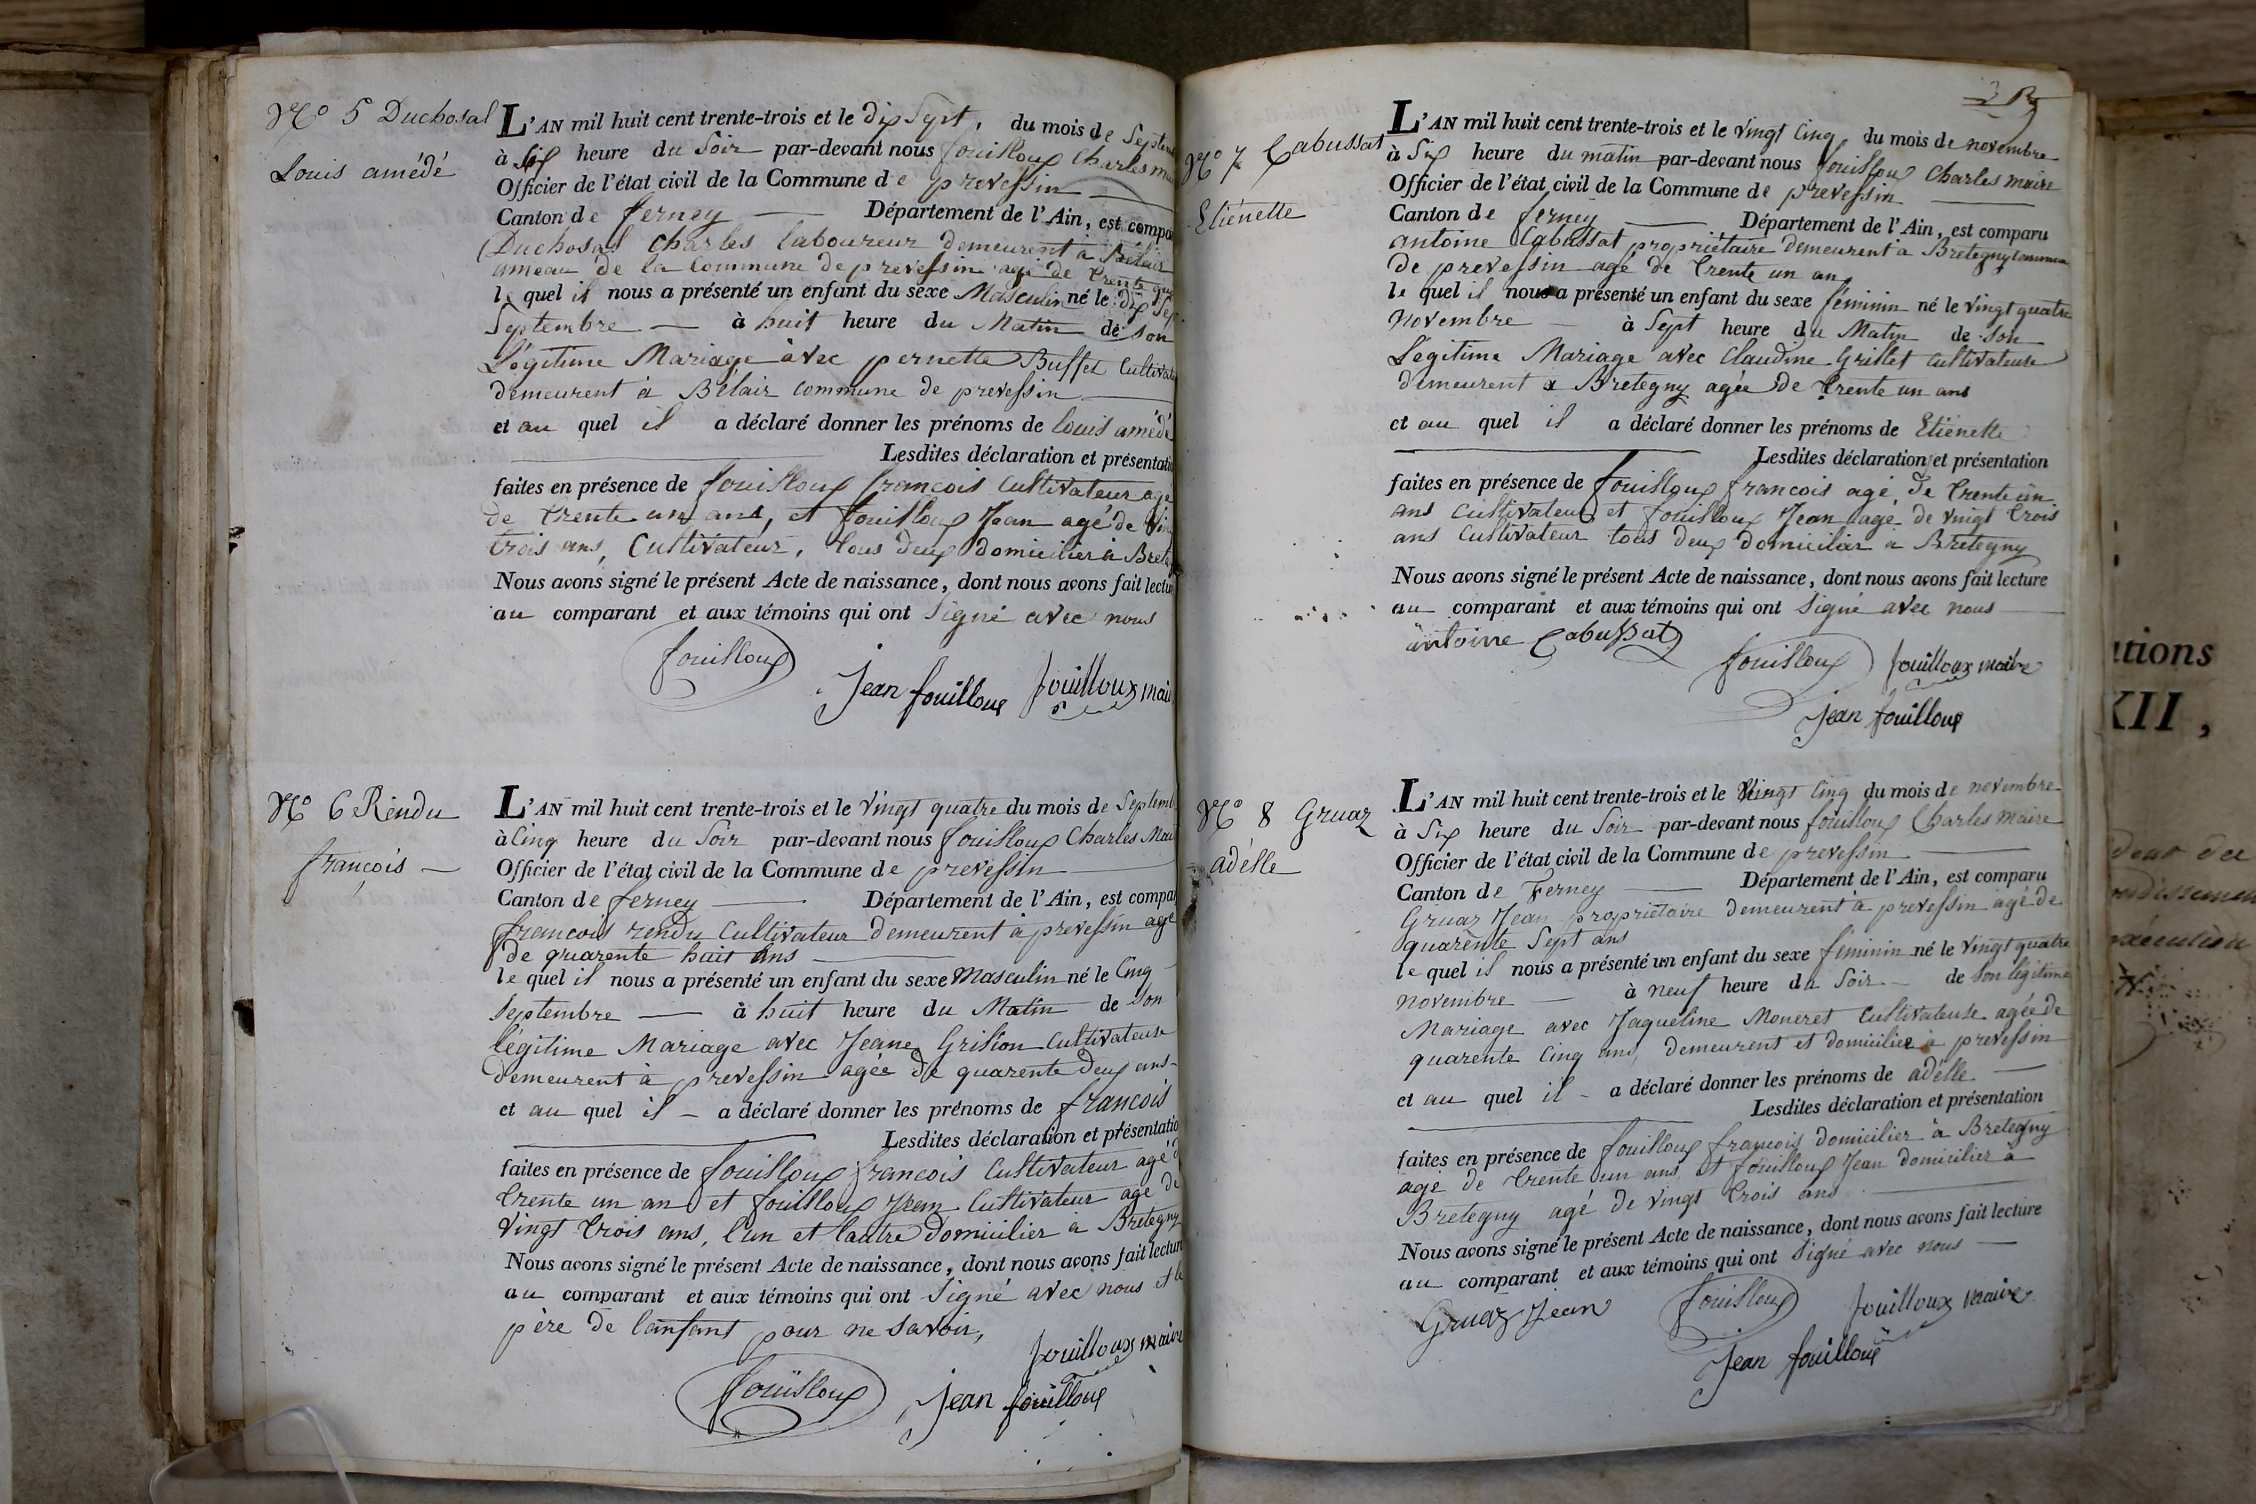 N.o 5 Duchosal
Louis amédé
L'AN mil huit cent trente-trois et le dix Sept, du mois de Septem
à Six heure du Soir par-devant nous fouilloux Charles m
Officier de l'état civil de la Commune de prevessin
Canton de ferney Département de l'Ain, est compa
Duchosal Charles laboureur demeurent à Bélair
ameau de la Commune de prevessin agé de trente
le quel il nous a présenté un enfant du sexe Masculin né le dix Sep
Septembre à huit heure du Matin de son
Légitime Mariage avec pernette Buffet Cultivat
demeurent à Bélair commune de prevessin
et au quel il a déclaré donner les prénoms de louis amédé
Lesdites déclaration et présentatio
faites en présence de fouilloux francois Cultivateur agé
de trente un ans, et fouilloux Jean agé de Vin
trois ans, Cultivateur, tous deux domicilier à Brete
Nous avons signé le présent Acte de naissance, dont nous avons fait lectu
au comparant et aux témoins qui ont Signé avec nous
fouilloux
Jean fouilloux fouilloux mai
N.o 6 Rendu
françois
L'AN mil huit cent trente-trois et le Vingt quatre du mois de Septemb
à Cinq heure du Soir par-devant nous fouilloux Charles Mai
Officier de l'état civil de la Commune de prevessin
Canton de ferney Département de l'Ain, est compa
francois rendu Cultivateur demeurent à prevessin agé
de quarente huit ans
le quel il nous a présenté un enfant du sexe Masculin né le Cinq
Septembre à huit heure du Matin de son
légitime Mariage avec Jeane Grision Cultivateuse
demeurent à prevessin agée de quarente Deux ans
et au quel il a déclaré donner les prénoms de francois
Lesdites déclaration et présentatio
faites en présence de fouilloux francois Cultivateur agé d
trente un an et fouilloux Jean Cultivateur agé de
Vingt trois ans, l'un et l'autre domicilier à Bretegny
Nous avons signé le présent Acte de naissance, dont nous avons fait lectur
au comparant et aux témoins qui ont Signé avec nous et le
père de l'anfant pour ne Savoir,
fouilloux maire
fouilloux
Jean fouilloux
N.o 7 Cabussat
Etiénette
L'AN mil huit cent trente-trois et le Vingt Cinq du mois de novembre
à Six heure du matin par-devant nous fouilloux Charles maire
Officier de l'état civil de la Commune de prevessin
Canton de ferney Département de l'Ain, est comparu
antoine Cabussat propriétaire demeurent à Bretegny Commune
de prevessin agé de trente un an
le quel il nous a présenté un enfant du sexe féminin né le Vingt quatre
Novembre à Sept heure du Matin de son
Légitime Mariage avec Claudine Grillet Cultivateuse
demeurent a Bretegny agée de trente un ans
et au quel il a déclaré donner les prénoms de Etienette
Lesdites déclaration et présentation
faites en présence de fouilloux francois agé, de trente un
ans Cultivateur et fouilloux Jean agé de vingt trois
ans Cultivateur tous deux domicilier a Bretegny
Nous avons signé le présent Acte de naissance, dont nous avons fait lecture
au comparant et aux témoins qui ont Signé avec nous
antoine Cabussat
fouilloux fouilloux maire
Jean fouilloux
N.o 8 Gruaz
adélle
L'AN mil huit cent trente-trois et le Vingt Cinq du mois de novembre
à Six heure du Soir par-devant nous fouilloux Charles maire
Officier de l'état civil de la Commune de prevessin
Canton de Ferney Département de l'Ain, est comparu
Gruaz Jean propriétaire demeurent à prevessin agé de
quarente Sept ans
le quel il nous a présenté un enfant du sexe féminin né le Vingt quatre
novembre à neuf heure du Soir de Son légitime
Mariage avec Jaqueline Moneret Cultivateuse agée de
quarente Cinq ans, demeurent et domicilier a prevessin
et au quel il a déclaré donner les prénoms de adélle
Lesdites déclaration et présentation
faites en présence de fouilloux francois domicilier à Bretegny
agé de trente un ans et fouilloux Jean domicilier à
Bretegny agé de vingt trois ans
Nous avons signé le présent Acte de naissance, dont nous avons fait lecture
au comparant et aux témoins qui ont Signé avec nous
Gruaz Jean fouilloux fouilloux maire
Jean fouilloux
ations
XII,